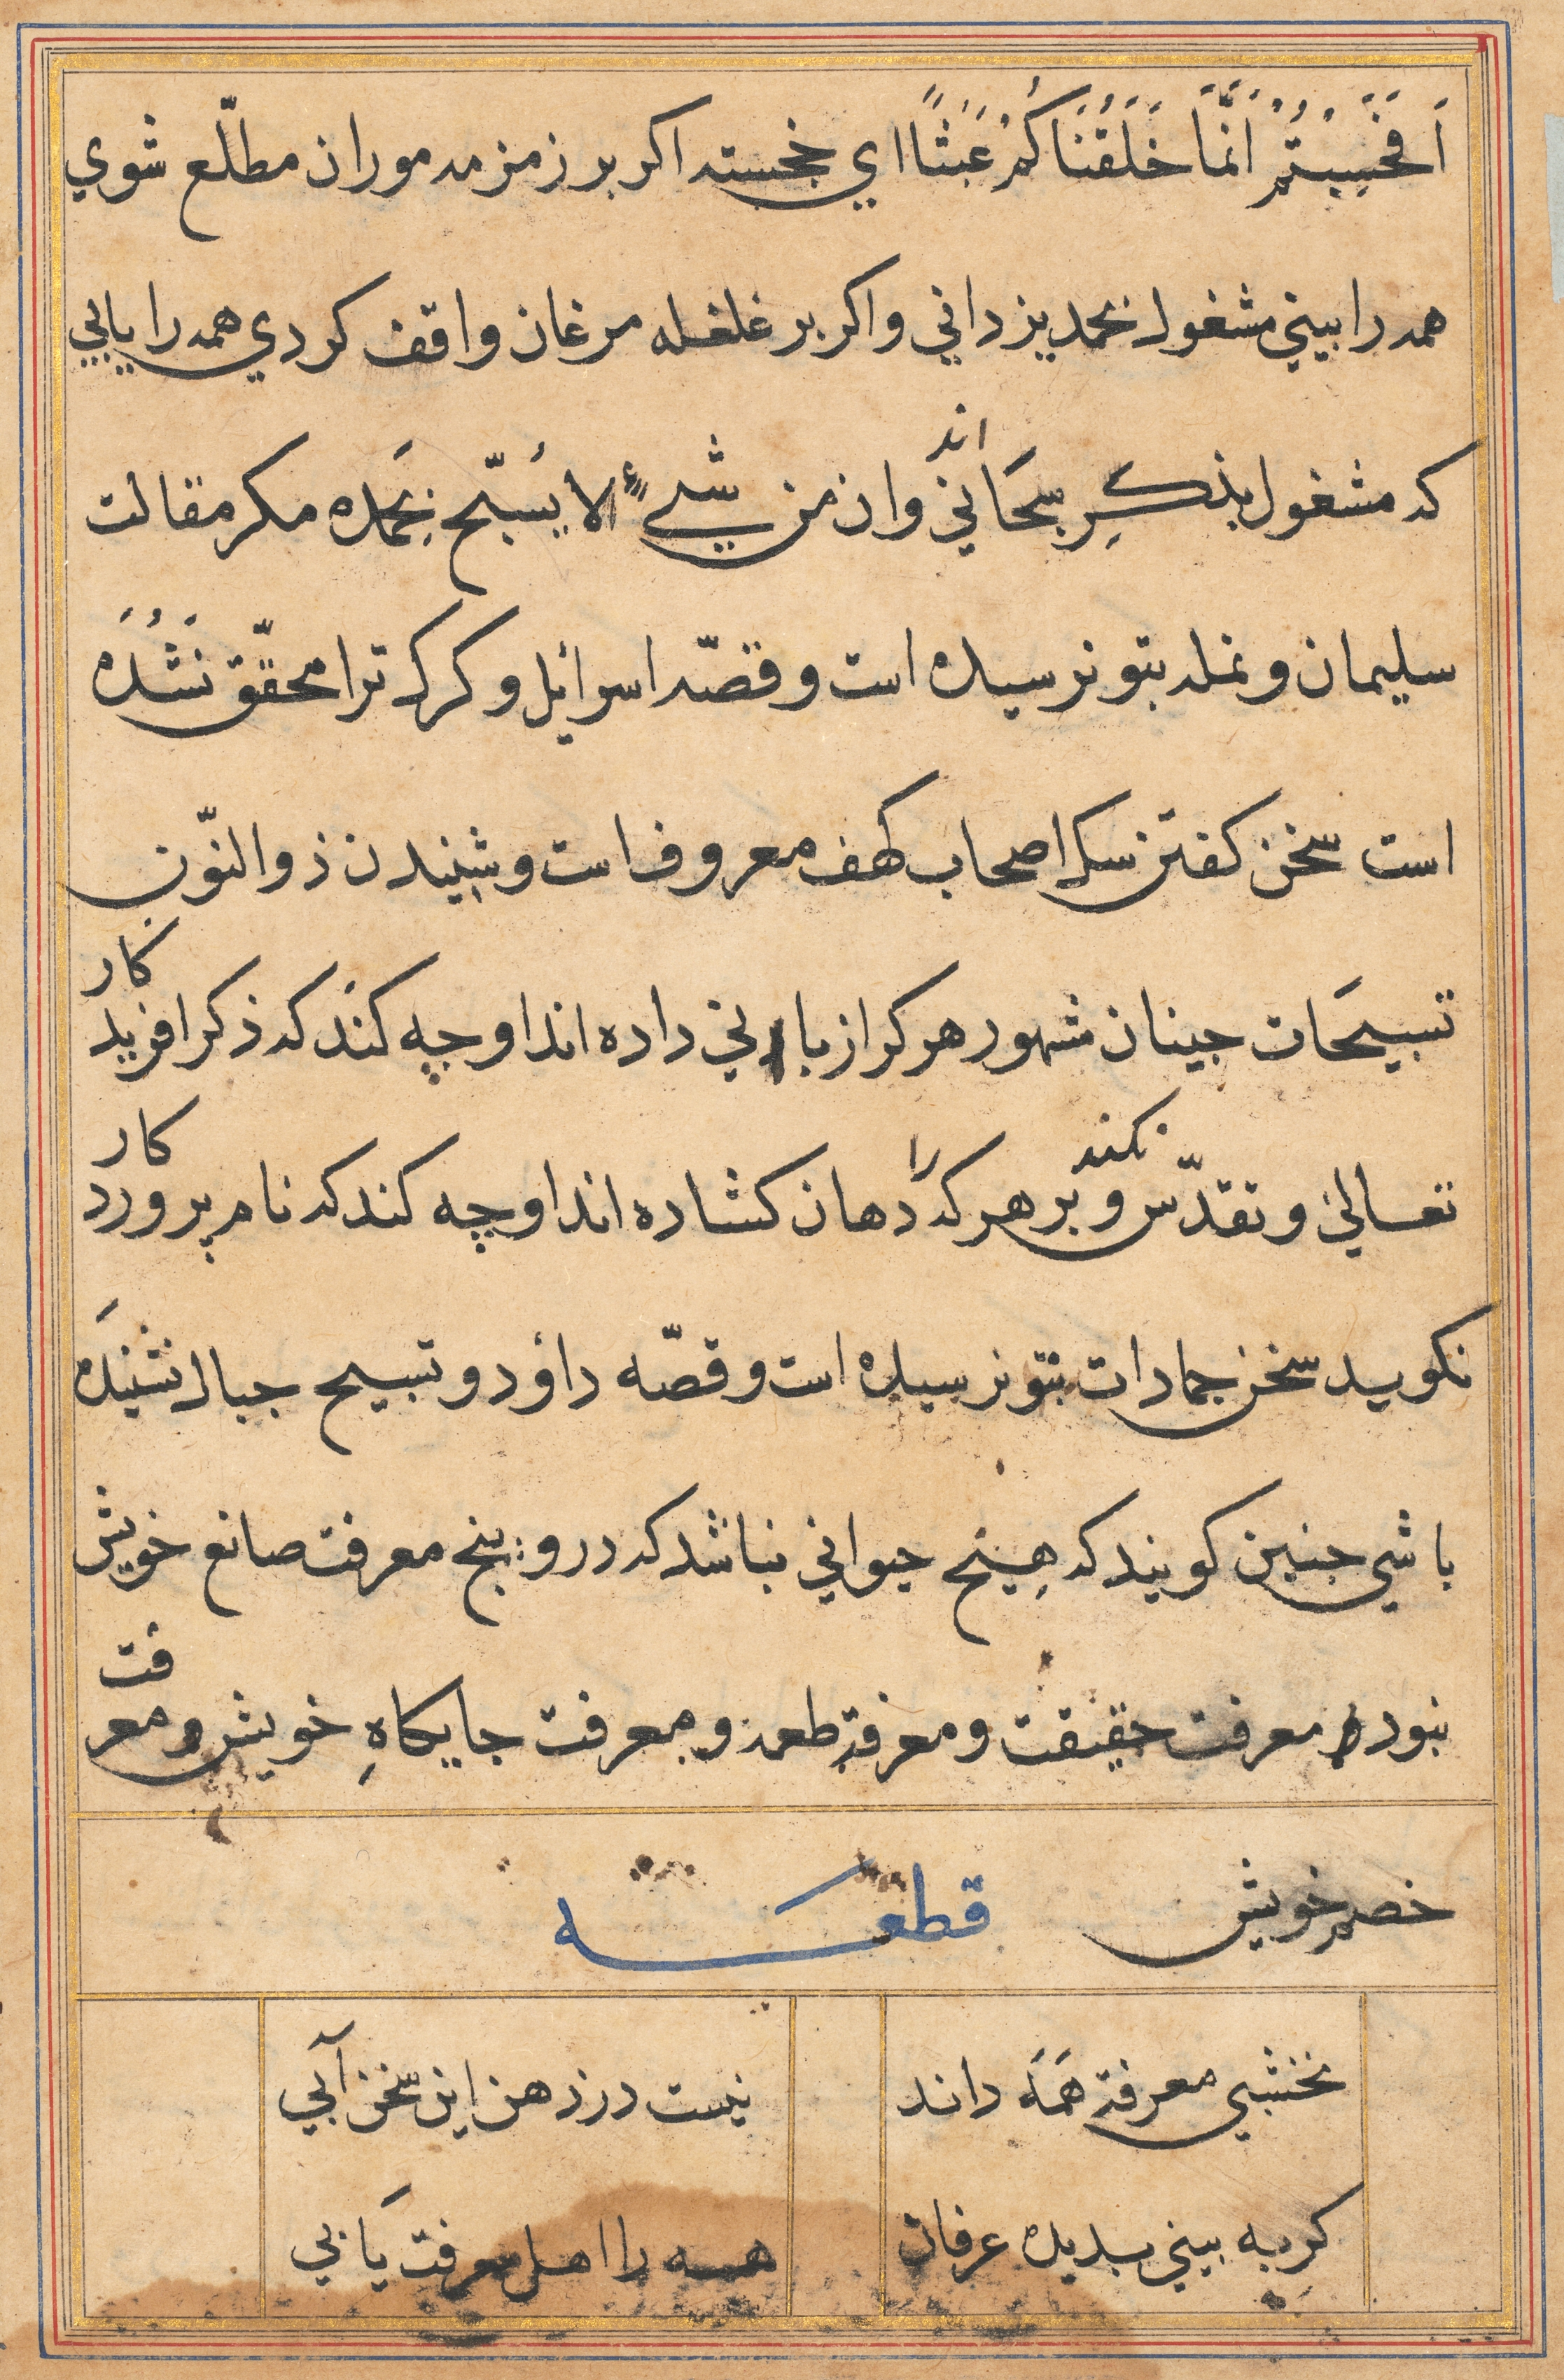 اَفَحَسِبْتُمْ اَنَّمَا خَلَقْنَاكُمْ عَبَثًا اي خجسته اكر بر زمزمه موران مطلّع شوي
همه را بيني مشغول بحمد يزداني و اكر بر غلغله مرغان واقف كردي همه را يابي
كه مشغول بذكرِ سبحَاني اند وان من شيءٍ الا يُسبّح بِحَمده مكر مقالت
سليمان و نمله بتو نرسيده است و قصّه اسرائيل و كرك ترا محقّق نَشُدَه
است سخن كفتن سك اصحاب كهف معروف است و شنيدن ذوالنّون
تسبيحَات جينان مشهور هر كرا زباني داده اند او چه كند كه ذكر افريد كار
تعالي و تقدّس نكند و بر هر كه را دهان كشاده اند او چه كند كه نام پرورد كار
نكويد سخن جمادات بتو نرسيده است و قصّه داؤد و تسبيح جبال نشنيدَه
باشي جنين كويند كه هِيچ حيواني نباشد كه درو پنج معرفت صانع خويش
نبود معرفت حقيقت و معرفة طعمه و معرفت جايكاهِ خويش و معر فت
خصم خويش قطعه
نخشبي معرفة هَمَه داند نيست در ذهن اين سخن آبي
كر به بيني بديده عرفان همه را اهل معرفت يَابي